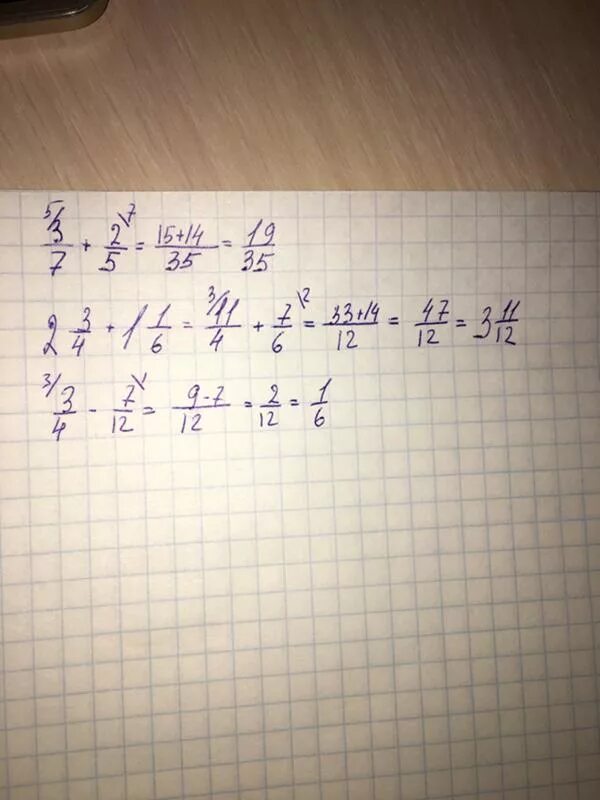 5/ 3/7 + 2/5 \7 = 15+14/35 = 19/35
2 3/4 + 1 1/6 = 3/ 11/4 + 7/6 \2 = 33+14/12 = 47/12 = 3 11/12
3/ 3/4 - 7/12 \1 = 9-7/12 = 2/12 = 1/6